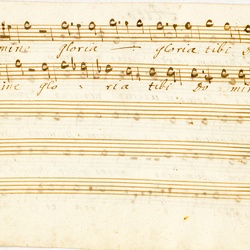 mine gloria gloria tibi
ine glo ria tibi Do min